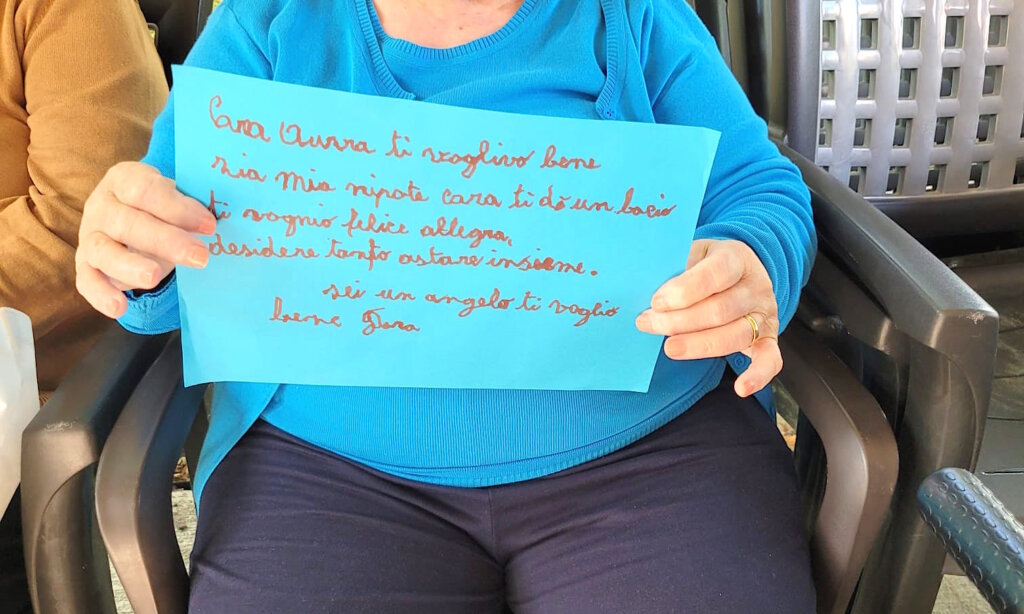 Cara Aurra ti voglivo bene
sia mia nipote cara ti dò un bacio
ti vognio felice allegra,
desidere tanto astare insieme.
sei un angelo ti voglio
bene Dora